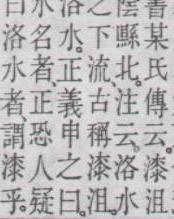 書某氏傳云。漆沮
陰縣北。注云。洛水
之下流。古稱漆沮。
洛水。正義申之曰。
水名者、正恐人疑
曰洛水者、謂漆乎。